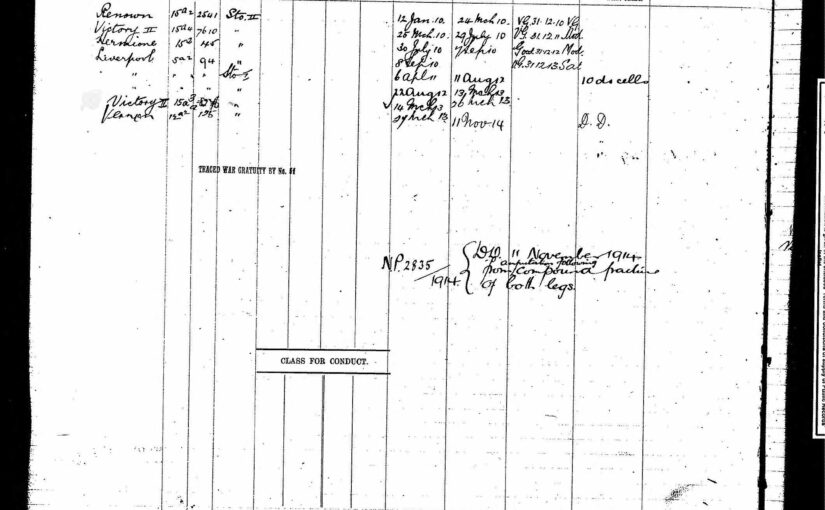 Renown 15a2 2541 Sto. II 12 Jan. 10 24 Mch 10. V.G. 31.12.10 V.G.
Victory II 15a4 7610 " 25 Mch. 10. 29 July 10 V.G. 31.12.11 Mod.
Hermione 15a2 45 " 30 July 10 7 Sep 10 Good 31.12.12 Mod.
Liverpool 5a2 94 " 8 Sep 10 V.G. 31.12.13 Sat
" " " Sto I 6 Apl 11 11 Aug 12 10 ds cells
" " " " 22 Aug 12 13 Mch 13
Victory II 15a3 " 14 Mch 13 26 Mch 13
Vernon 15a2 136 " 27 Mch 13 11 Nov 14 D.D.
"
TRACED WAR GRATUITY BY No.
N.P. 2835/1914 { D.D. 11 November 1914
from amputation following compound fracture
of both legs.
CLASS FOR CONDUCT.